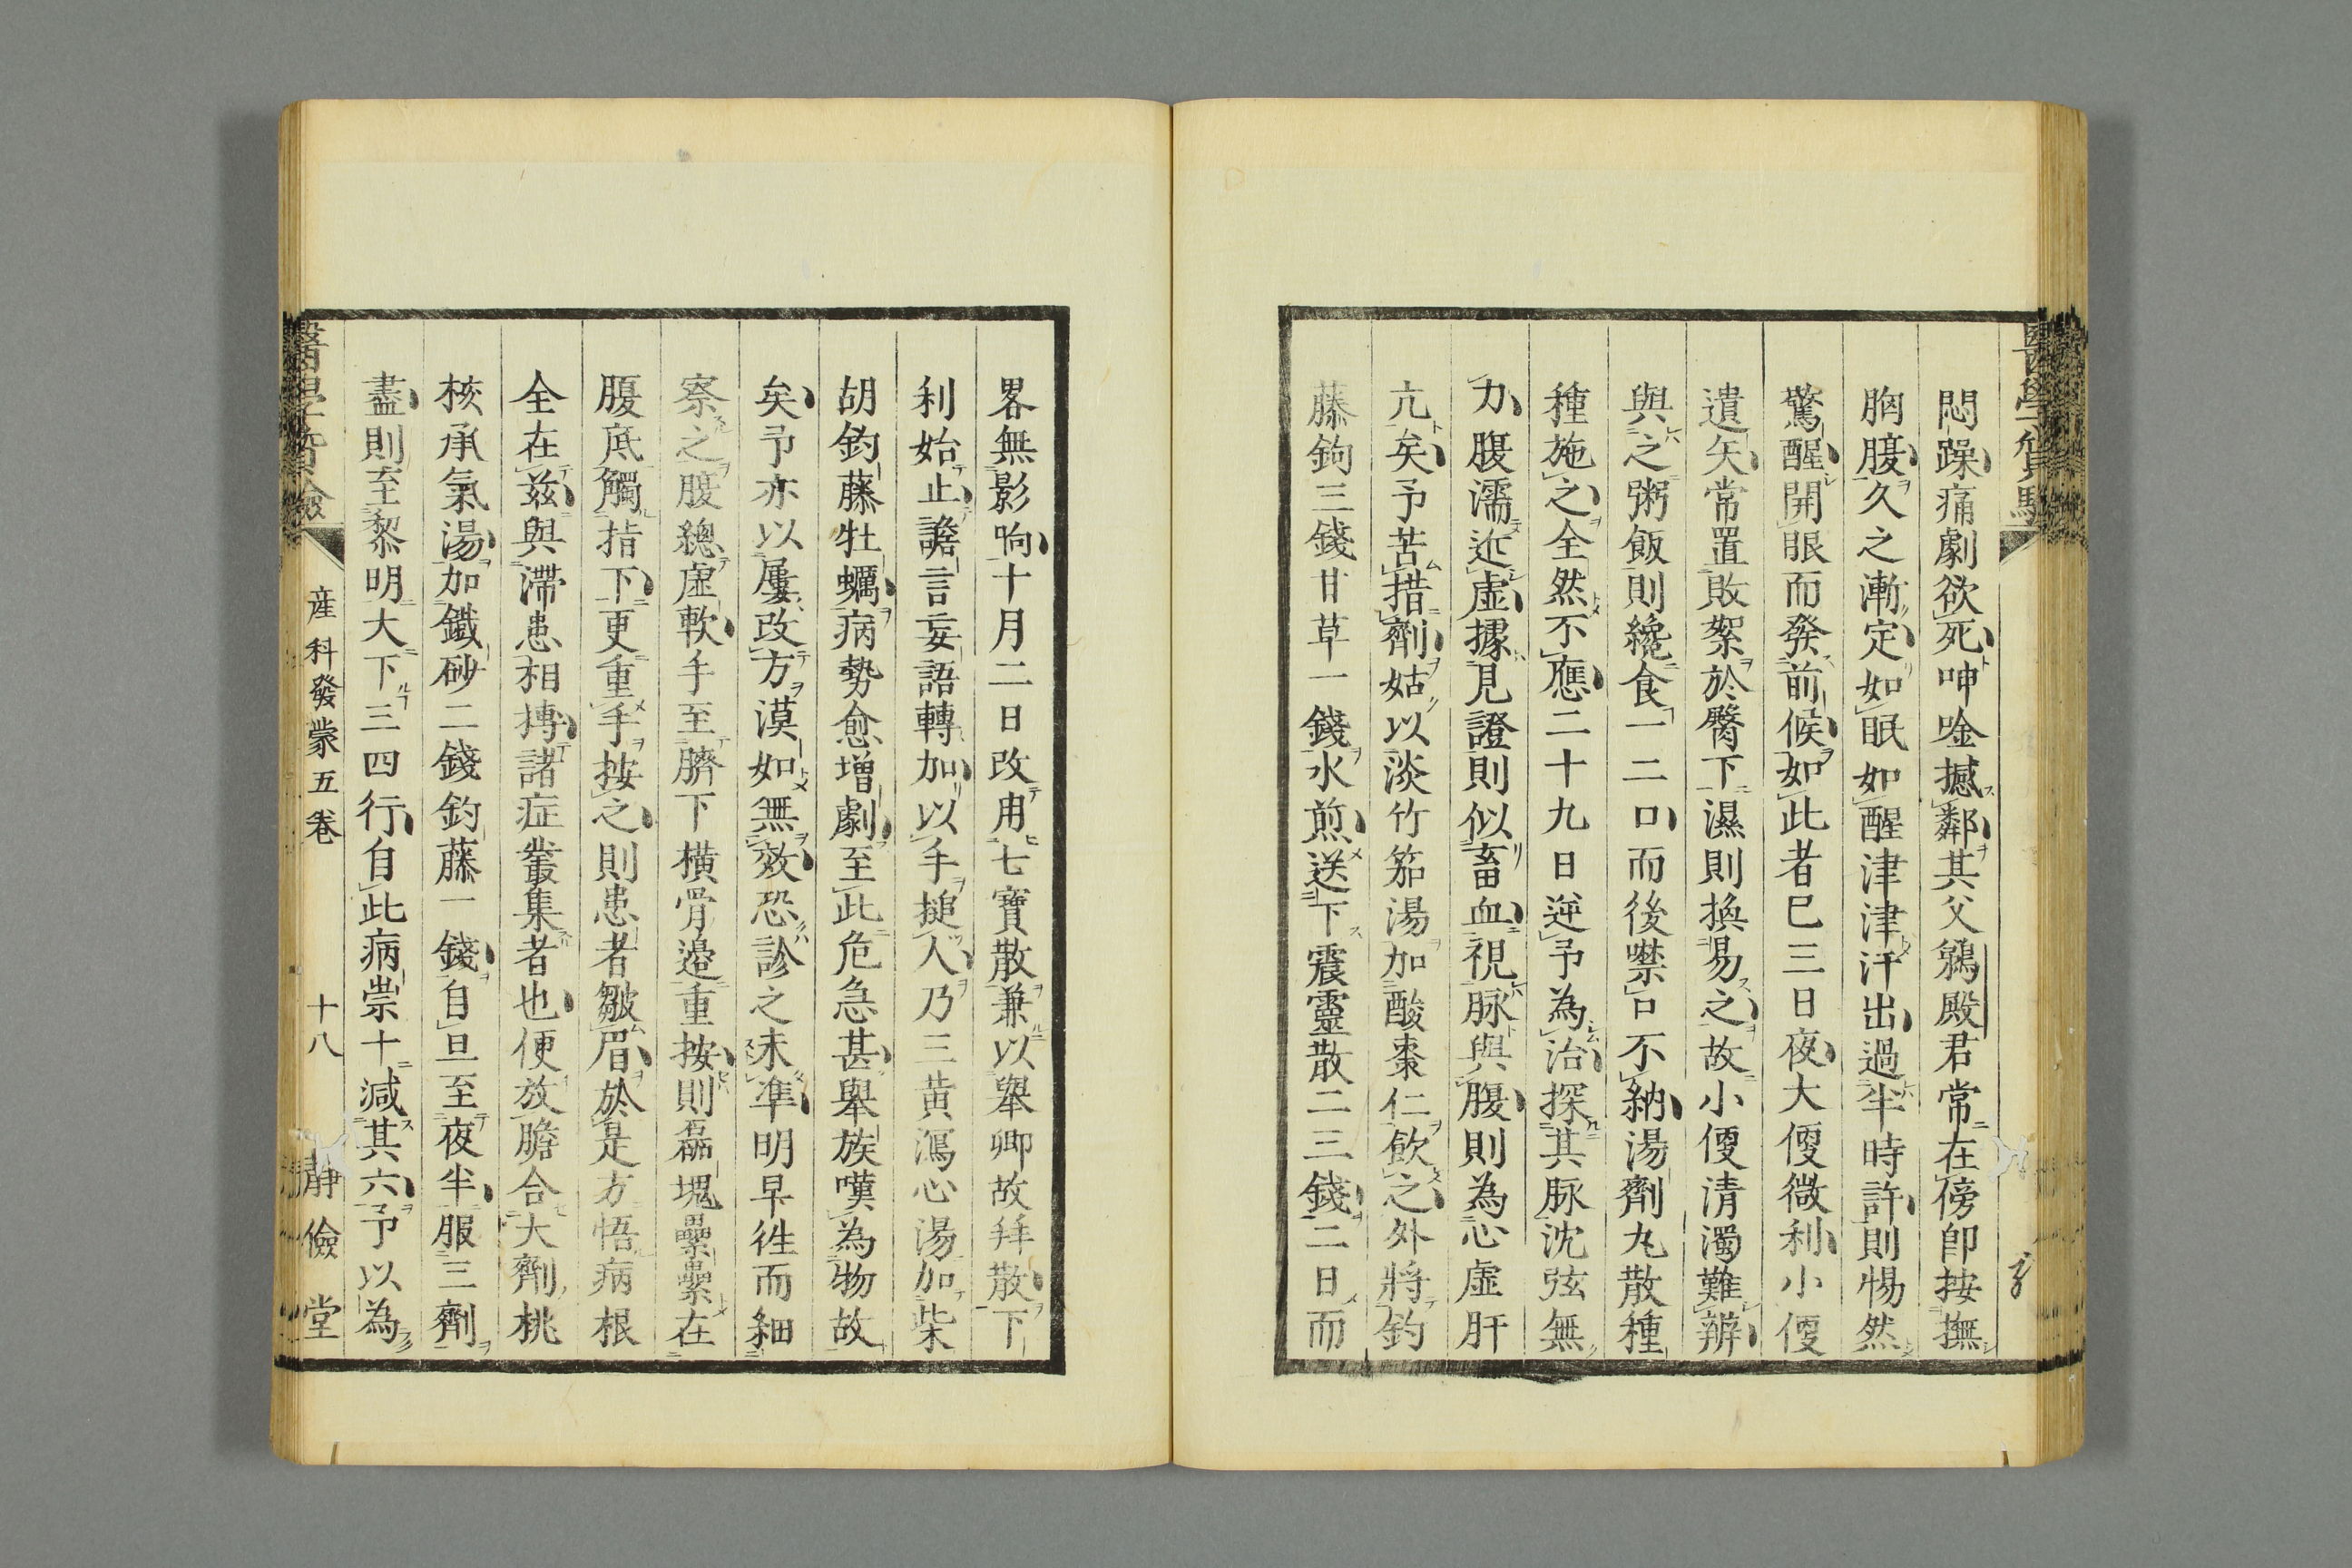 悶躁痛劇欲死呻唫撼鄰其父鵷殿君常在傍卽按撫
胸腹久之漸定如眠如醒津津汗出過半時許則惕然
驚醒開眼而發前候如此者已三日夜大便微利小便
遺矢常置敗絮於臀下濕則換易之故小便清濁難辨
與之粥飯則纔食一二口而後噤口不納湯劑丸散種
種施之全然不應二十九日逆予為治探其脉沈弦無
力腹濡近虛據見證則似畜血視脉與腹則為心虛肝
亢矣予苦措劑姑以淡竹茹湯加酸棗仁飲之外將釣
藤鉤三錢甘草一錢水煎送下震靈散二三錢二日而
畧無影响十月二日改用七寶散兼以舉卿故拜散下
利始止譫言妄語轉加以手搥人乃三黄瀉心湯加柴
胡釣藤牡蠣病勢愈增劇至此危急甚舉族嘆為物故
矣予亦以屢改方漠如無效恐診之未準明早徃而細
察之腹總虛軟手至臍下橫骨邊重按則磊塊纍纍在
腹底觸指下更重手按之則患者皺眉於是方悟病根
全在茲與滯患相摶諸症叢集者也便放膽合大劑桃
核承氣湯加鐵砂二錢釣藤一錢自旦至夜半服三劑
盡則至黎明大下三四行自此病祟十減其六予以為
產科發蒙五卷
十八
靜儉堂